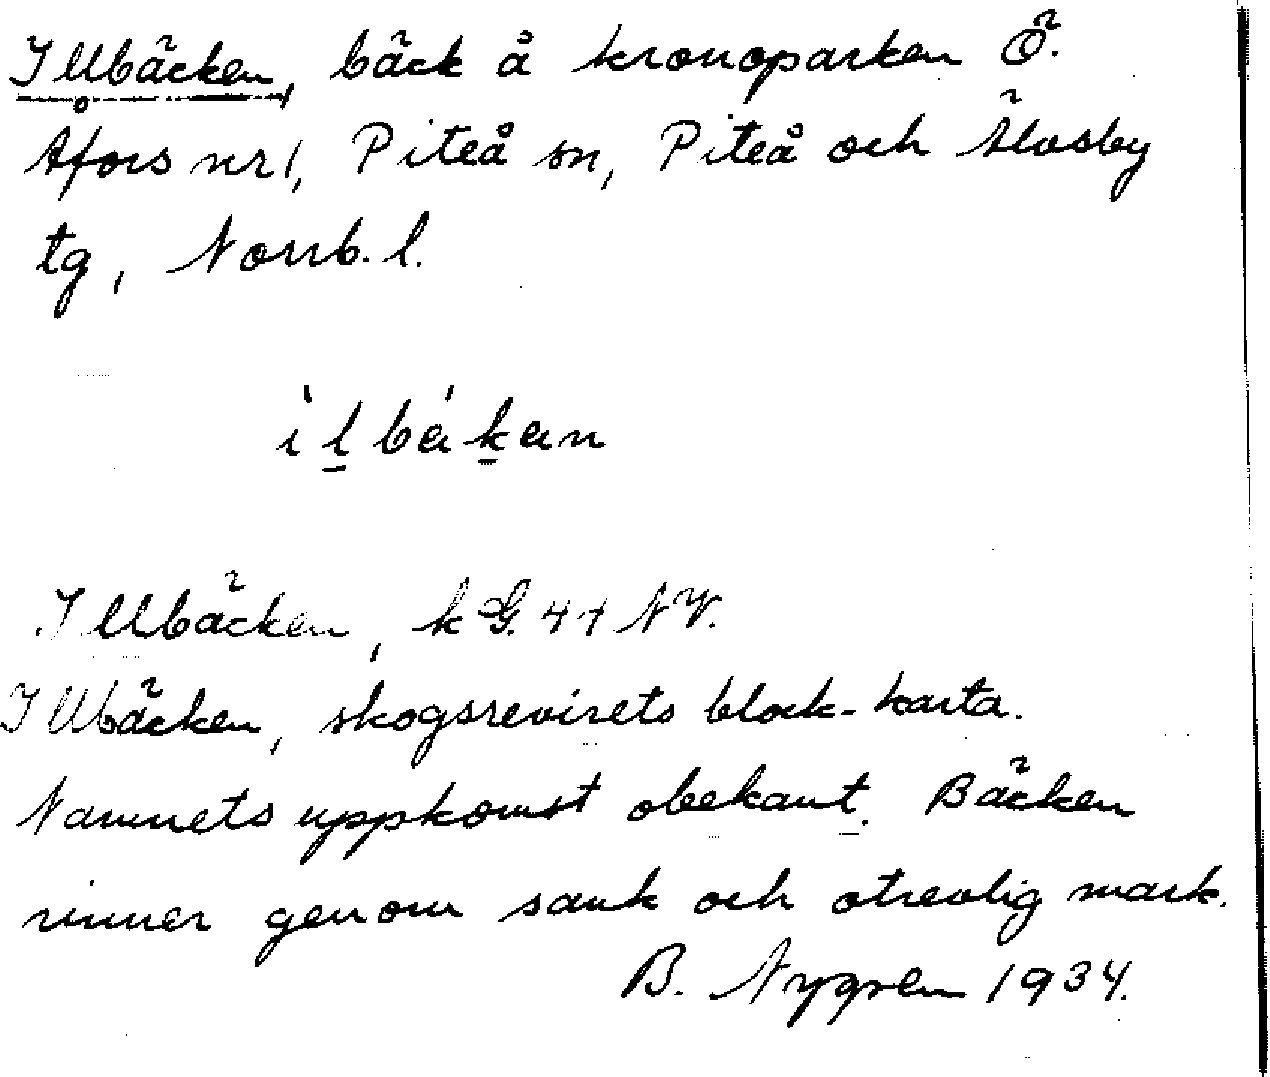 Illbäcken, bäck å kronoparken Ö.
Åfors nr 1, Piteå sn, Piteå och Älvsby
tg, Norrb. l.
ìlbákan
Illbäcken, kG. 44 NV.
Illbäcken, skogsrevirets block-karta.
Namnets uppkomst obekant. Bäcken
rinner genom sank och otrevlig mark.
B. Nygren 1934.